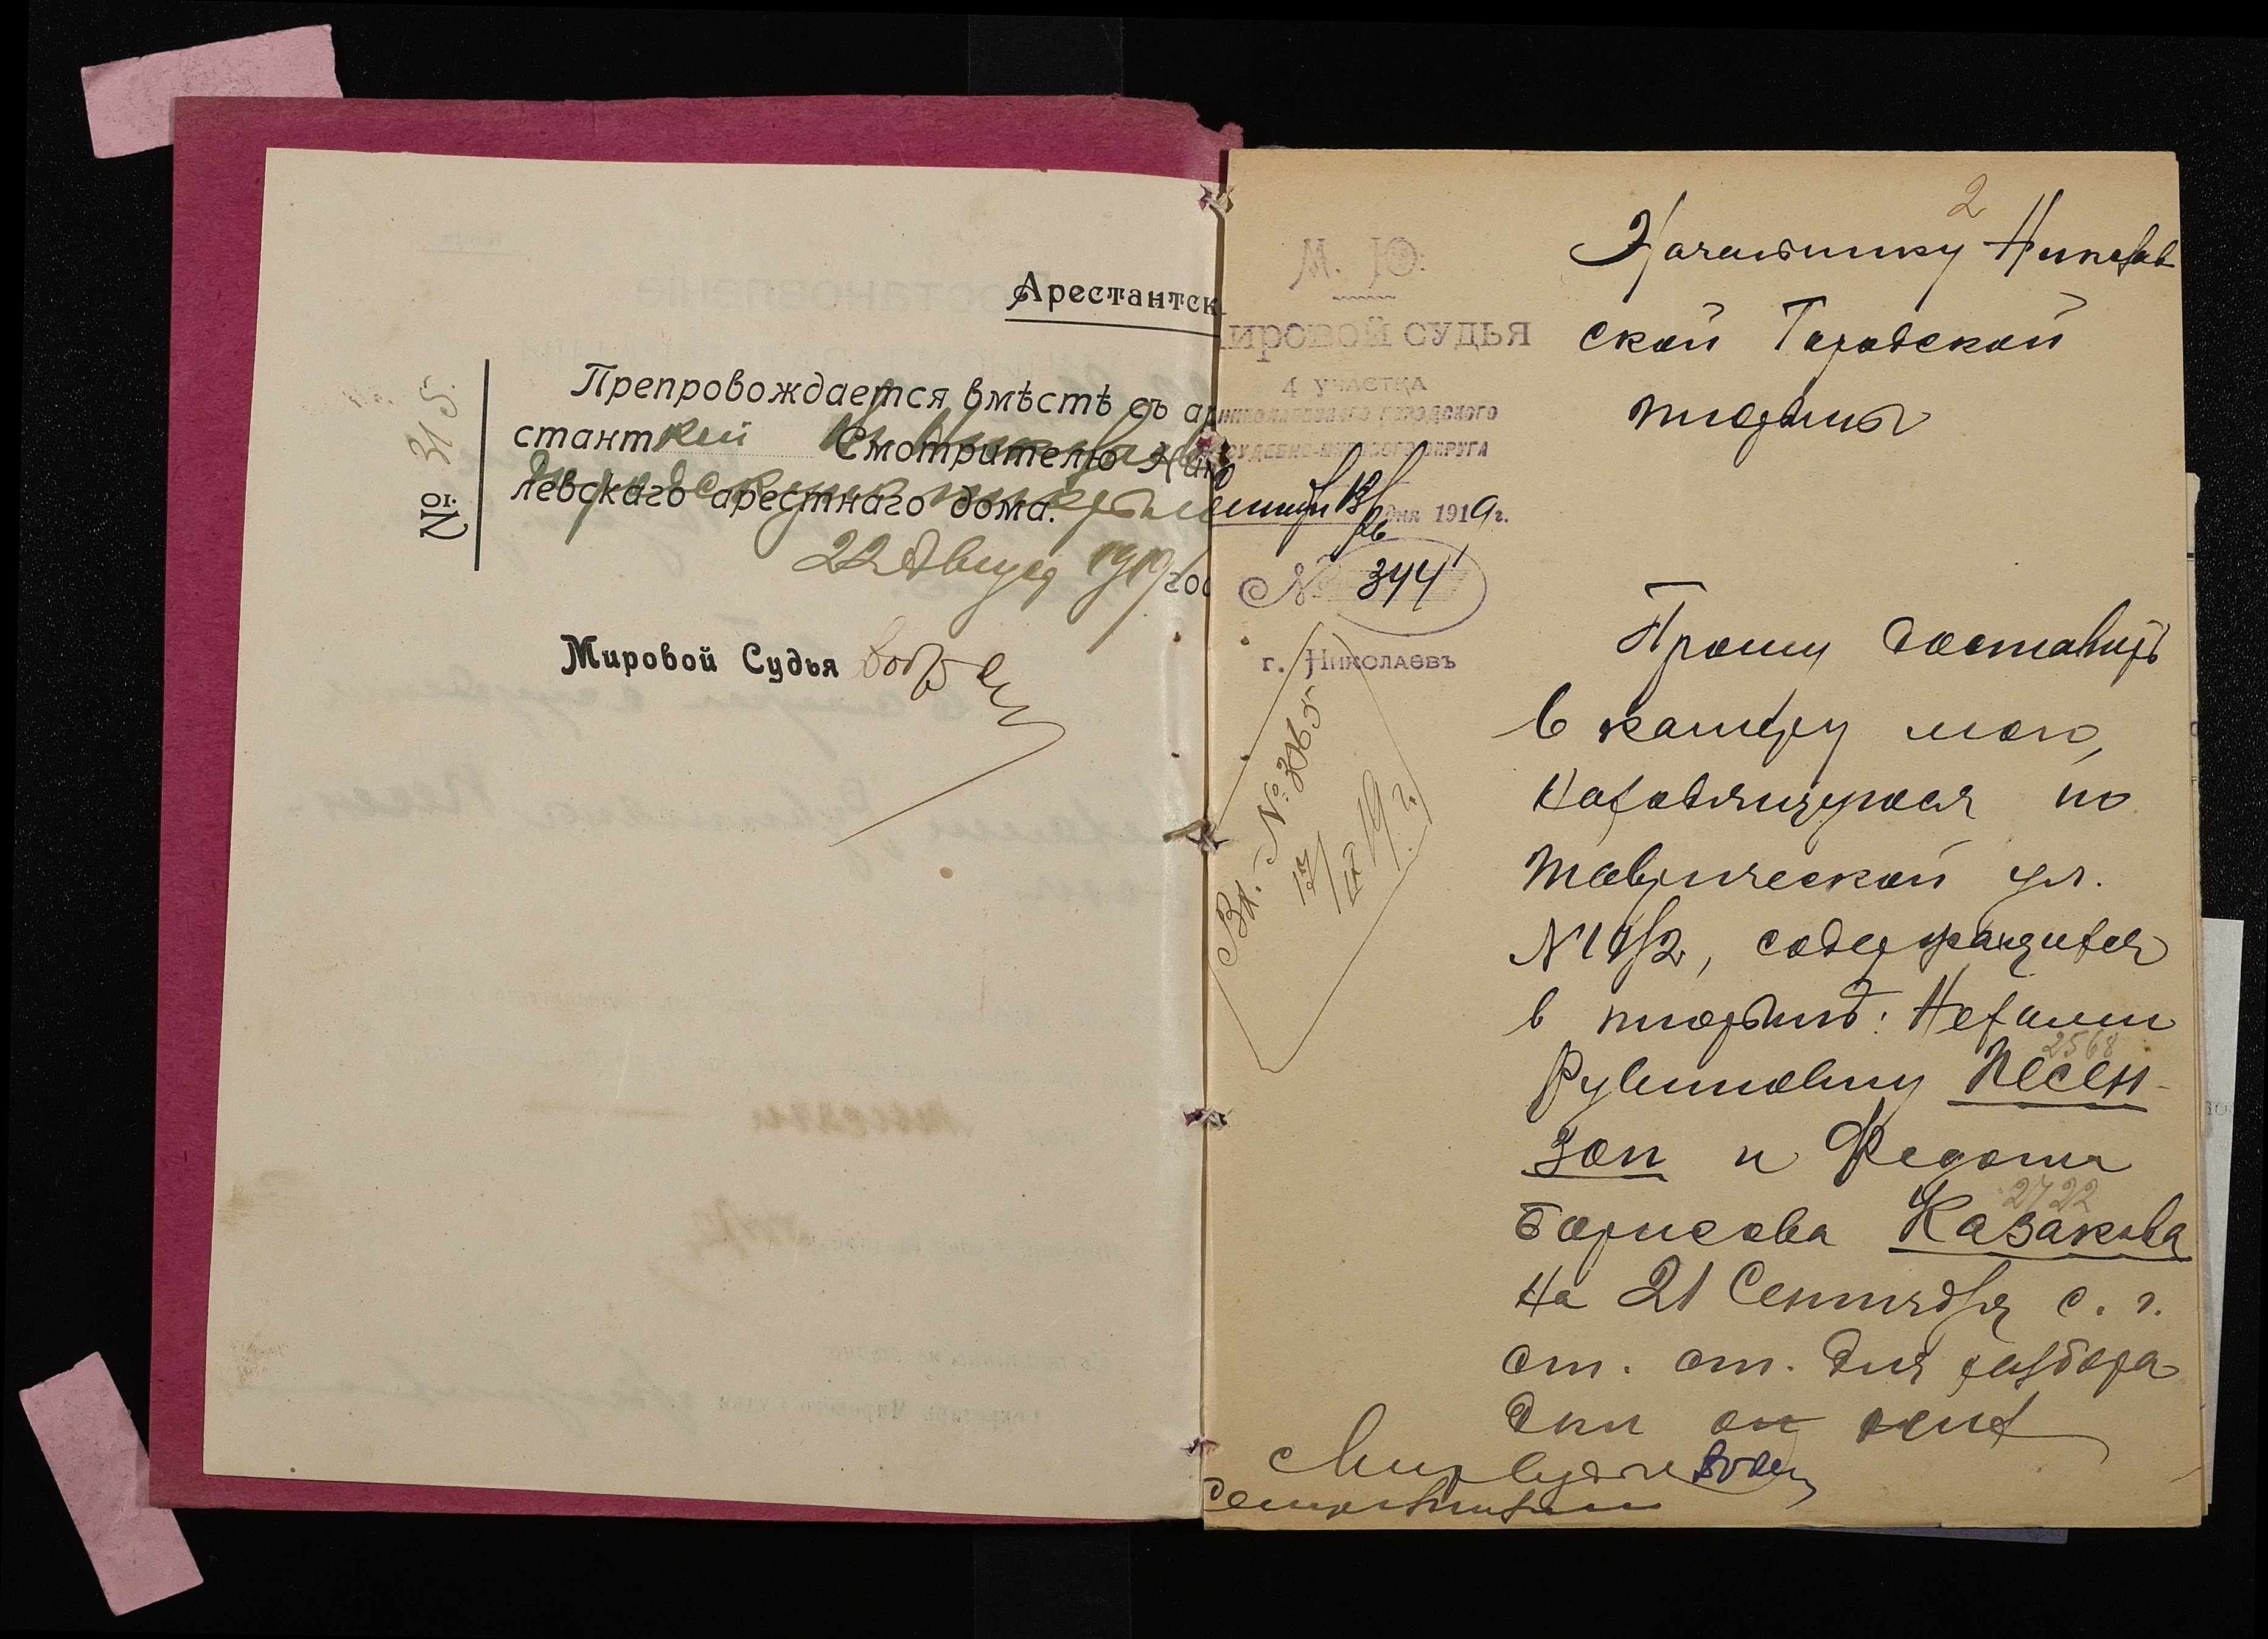 Арестантск
Препровождается вмѣстѣ съ ар
станткой Смотрителю Нико
левскаго арестнаго дома.
22 Август 1919 год
№ 315.
Мировой Судья
2
М. Ю.
ировой судья
4 участка
николаевского городского
судебно-мирового округа
дня 1919 г.
№ 344
г. Николаевъ
Вх. № 3365
12/IX 19 г.
Начальнику Николаев
ской Городской
тюрьмы
Прошу доставить
в камеру мою,
находящуюся по
Таврической ул.
№ 11/2, содержащихся
в тюрьмѣ: Нехами
2568
Рувиновну Песен-
зон и Федота
2722
Борисова Казакова
на 21 Сентября с. г.
ст. ст. для разбора
дѣл о них
Мир Судья
Секретарь